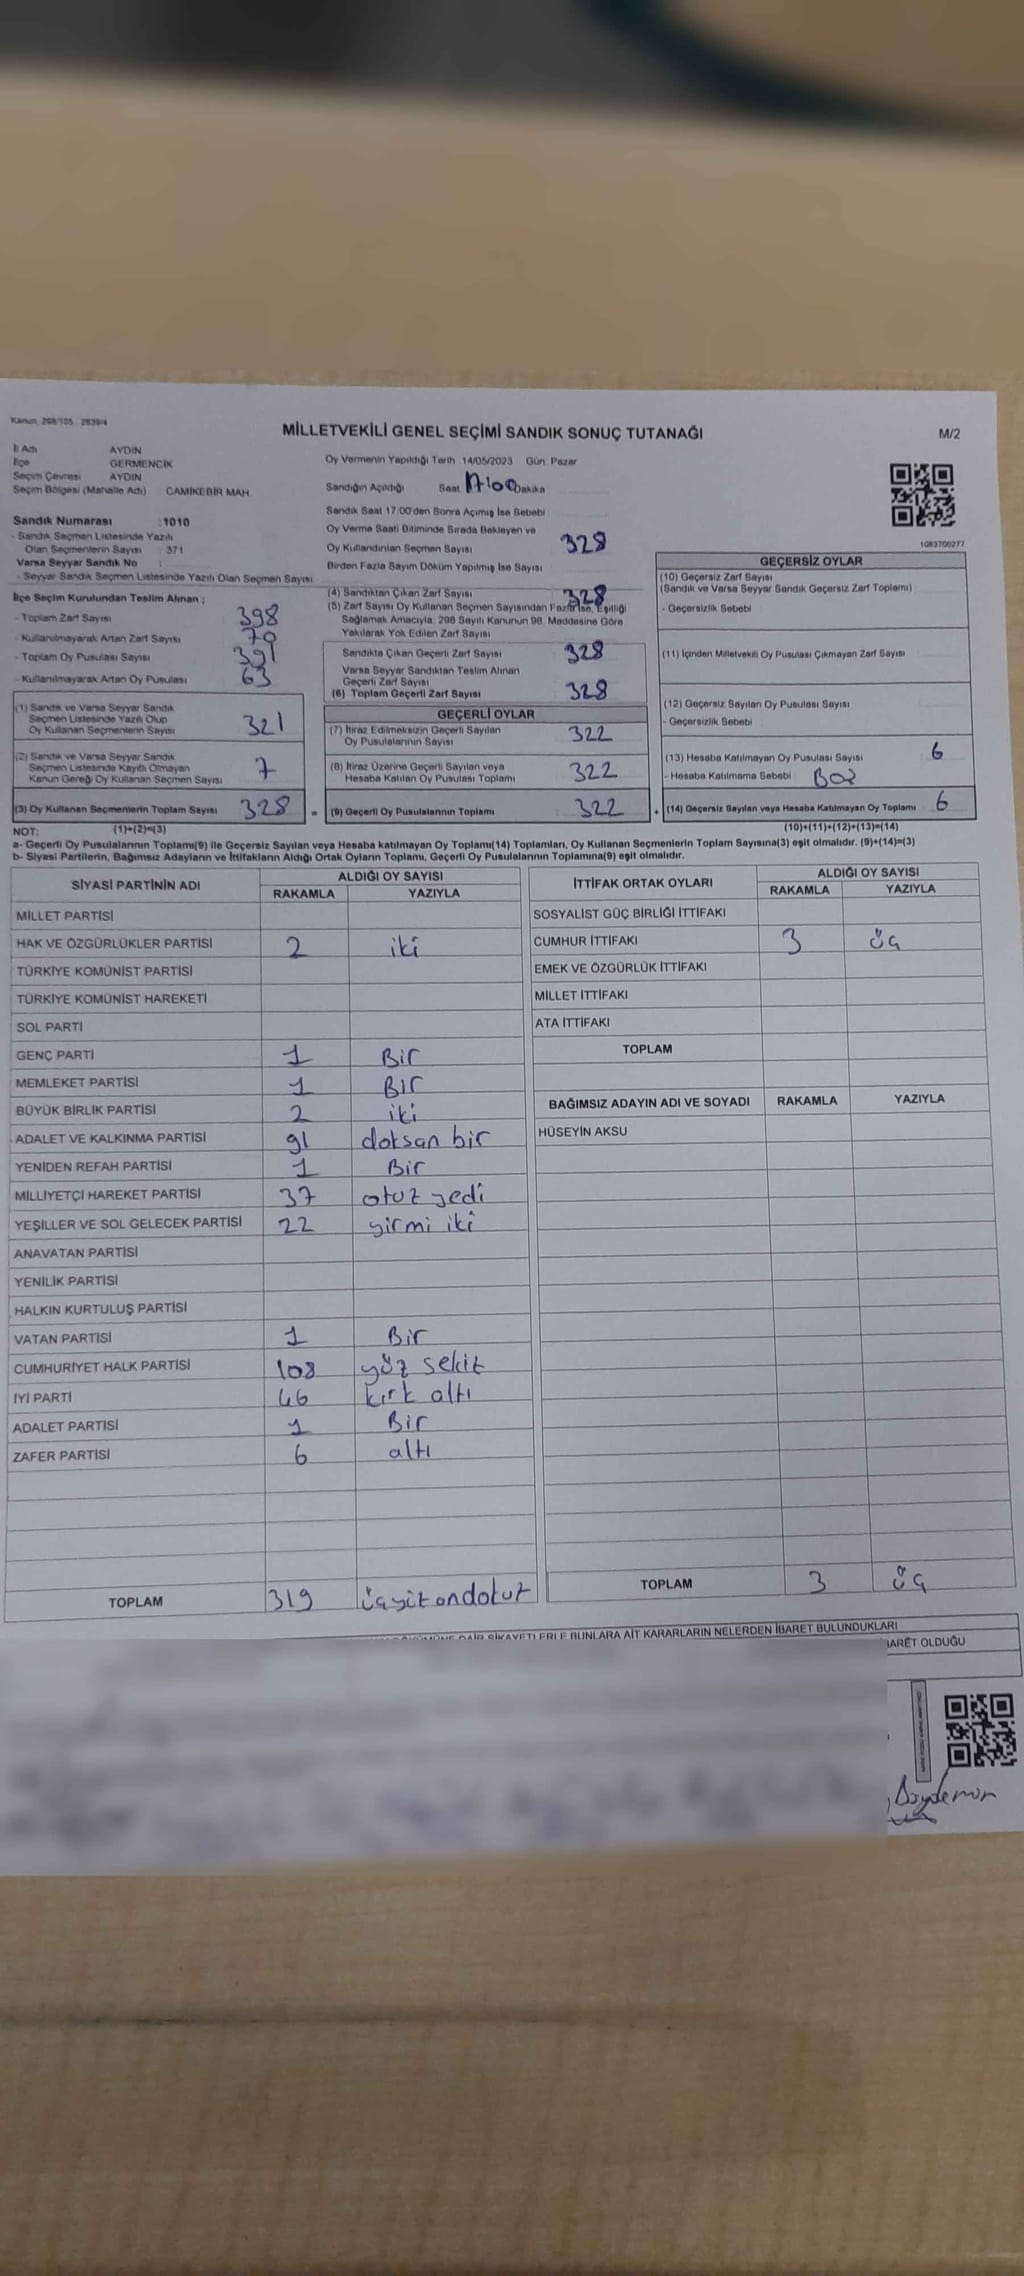 Kanun: 298/105 2839/4
MİLLETVEKİLİ GENEL SEÇİMİ SANDIK SONUÇ TUTANAĞI
M/2
İl Adı AYDIN
İlçe GERMENCİK
Seçim Çevresi AYDIN
Seçim Bölgesi (Mahalle Adı) CAMİKEBİR MAH.
Oy Vermenin Yapıldığı Tarih 14/05/2023 Gün: Pazar
Sandığın Açıldığı Saat 17:00 Dakika
Sandık Saat 17.00'den Sonra Açımış İse Sebebi
Oy Verme Saati Bitiminde Sırada Bekleyen ve
Oy Kullandırılan Seçmen Sayısı 328
Birden Fazla Sayım Döküm Yapılmış İse Sayısı
1083700277
Sandık Numarası : 1010
- Sandık Seçmen Listesinde Yazılı
Olan Seçmenlerin Sayısı : 371
Varsa Seyyar Sandık No :
- Seyyar Sandık Seçmen Listesinde Yazılı Olan Seçmen Sayısı
İlçe Seçim Kurulundan Teslim Alınan ;
- Toplam Zarf Sayısı 398
- Kullanılmayarak Artan Zarf Sayısı 70
- Toplam Oy Pusulası Sayısı 391
- Kullanılmayarak Artan Oy Pusulası 63
(1) Sandık ve Varsa Seyyar Sandık
Seçmen Listesinde Yazılı Olup
Oy Kullanan Seçmenlerin Sayısı 321
(2) Sandık ve Varsa Seyyar Sandık
Seçmen Listesinde Kayıtlı Olmayan
Kanun Gereği Oy Kullanan Seçmen Sayısı 7
(3) Oy Kullanan Seçmenlerin Toplam Sayısı 328 =
(4) Sandıktan Çıkan Zarf Sayısı 328
(5) Zarf Sayısı Oy Kullanan Seçmen Sayısından Fazla İse, Eşitliği
Sağlamak Amacıyla, 298 Sayılı Kanunun 98. Maddesine Göre
Yakılarak Yok Edilen Zarf Sayısı
Sandıkta Çıkan Geçerli Zarf Sayısı 328
Varsa Seyyar Sandıktan Teslim Alınan
Geçerli Zarf Sayısı
(6) Toplam Geçerli Zarf Sayısı 328
GEÇERLİ OYLAR
(7) İtiraz Edilmeksizin Geçerli Sayılan
Oy Pusulalarının Sayısı 322
(8) İtiraz Üzerine Geçerli Sayılan veya
Hesaba Katılan Oy Pusulası Toplamı 322
(9) Geçerli Oy Pusulalarının Toplamı 322 +
GEÇERSİZ OYLAR
(10) Geçersiz Zarf Sayısı
(Sandık ve Varsa Seyyar Sandık Geçersiz Zarf Toplamı)
- Geçersizlik Sebebi
(11) İçinden Milletvekili Oy Pusulası Çıkmayan Zarf Sayısı
(12) Geçersiz Sayılan Oy Pusulası Sayısı
- Geçersizlik Sebebi
(13) Hesaba Katılmayan Oy Pusulası Sayısı 6
- Hesaba Katılmama Sebebi Boş
(14) Geçersiz Sayılan veya Hesaba Katılmayan Oy Toplamı 6
NOT: (1)+(2)=(3) (10)+(11)+(12)+(13)=(14)
a- Geçerli Oy Pusulalarının Toplamı(9) ile Geçersiz Sayılan veya Hesaba katılmayan Oy Toplamı(14) Toplamları, Oy Kullanan Seçmenlerin Toplam Sayısına(3) eşit olmalıdır. (9)+(14)=(3)
b- Siyasi Partilerin, Bağımsız Adayların ve İttifakların Aldığı Ortak Oyların Toplamı, Geçerli Oy Pusulalarının Toplamına(9) eşit olmalıdır.
SİYASİ PARTİNİN ADI ALDIĞI OY SAYISI
RAKAMLA YAZIYLA
MİLLET PARTİSİ
HAK VE ÖZGÜRLÜKLER PARTİSİ 2 iki
TÜRKİYE KOMÜNİST PARTİSİ
TÜRKİYE KOMÜNİST HAREKETİ
SOL PARTİ
GENÇ PARTİ 1 Bir
MEMLEKET PARTİSİ 1 Bir
BÜYÜK BİRLİK PARTİSİ 2 iki
ADALET VE KALKINMA PARTİSİ 91 doksan bir
YENİDEN REFAH PARTİSİ 1 Bir
MİLLİYETÇİ HAREKET PARTİSİ 37 otuz yedi
YEŞİLLER VE SOL GELECEK PARTİSİ 22 yirmi iki
ANAVATAN PARTİSİ
YENİLİK PARTİSİ
HALKIN KURTULUŞ PARTİSİ
VATAN PARTİSİ 1 Bir
CUMHURİYET HALK PARTİSİ 108 yüz sekiz
İYİ PARTİ 46 kırk altı
ADALET PARTİSİ 1 Bir
ZAFER PARTİSİ 6 altı
TOPLAM 319 üçyüzondokuz
İTTİFAK ORTAK OYLARI ALDIĞI OY SAYISI
RAKAMLA YAZIYLA
SOSYALİST GÜÇ BİRLİĞİ İTTİFAKI
CUMHUR İTTİFAKI 3 üç
EMEK VE ÖZGÜRLÜK İTTİFAKI
MİLLET İTTİFAKI
ATA İTTİFAKI
TOPLAM
BAĞIMSIZ ADAYIN ADI VE SOYADI RAKAMLA YAZIYLA
HÜSEYİN AKSU
TOPLAM 3 üç
DAİR ŞİKAYETLERLE BUNLARA AİT KARARLARIN NELERDEN İBARET BULUNDUKLARI
OLDUĞU